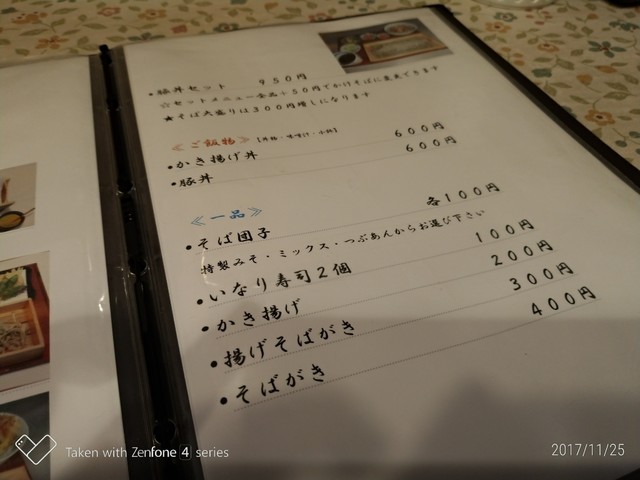 ・豚丼セット 950円
☆セットメニュー全品+50円でかけそばに変更できます
★そば大盛りは300円増しになります
≪ご飯物≫
・かき揚げ丼 600円
・豚丼 600円
≪一品≫
・そば団子 各100円
特製みそ・ミックス・つぶあんからお選び下さい
・いなり寿司2個 100円
・かき揚げ 200円
・揚げそばがき 300円
・そばがき 400円
Taken with Zenfone 4 series
2017/11/25